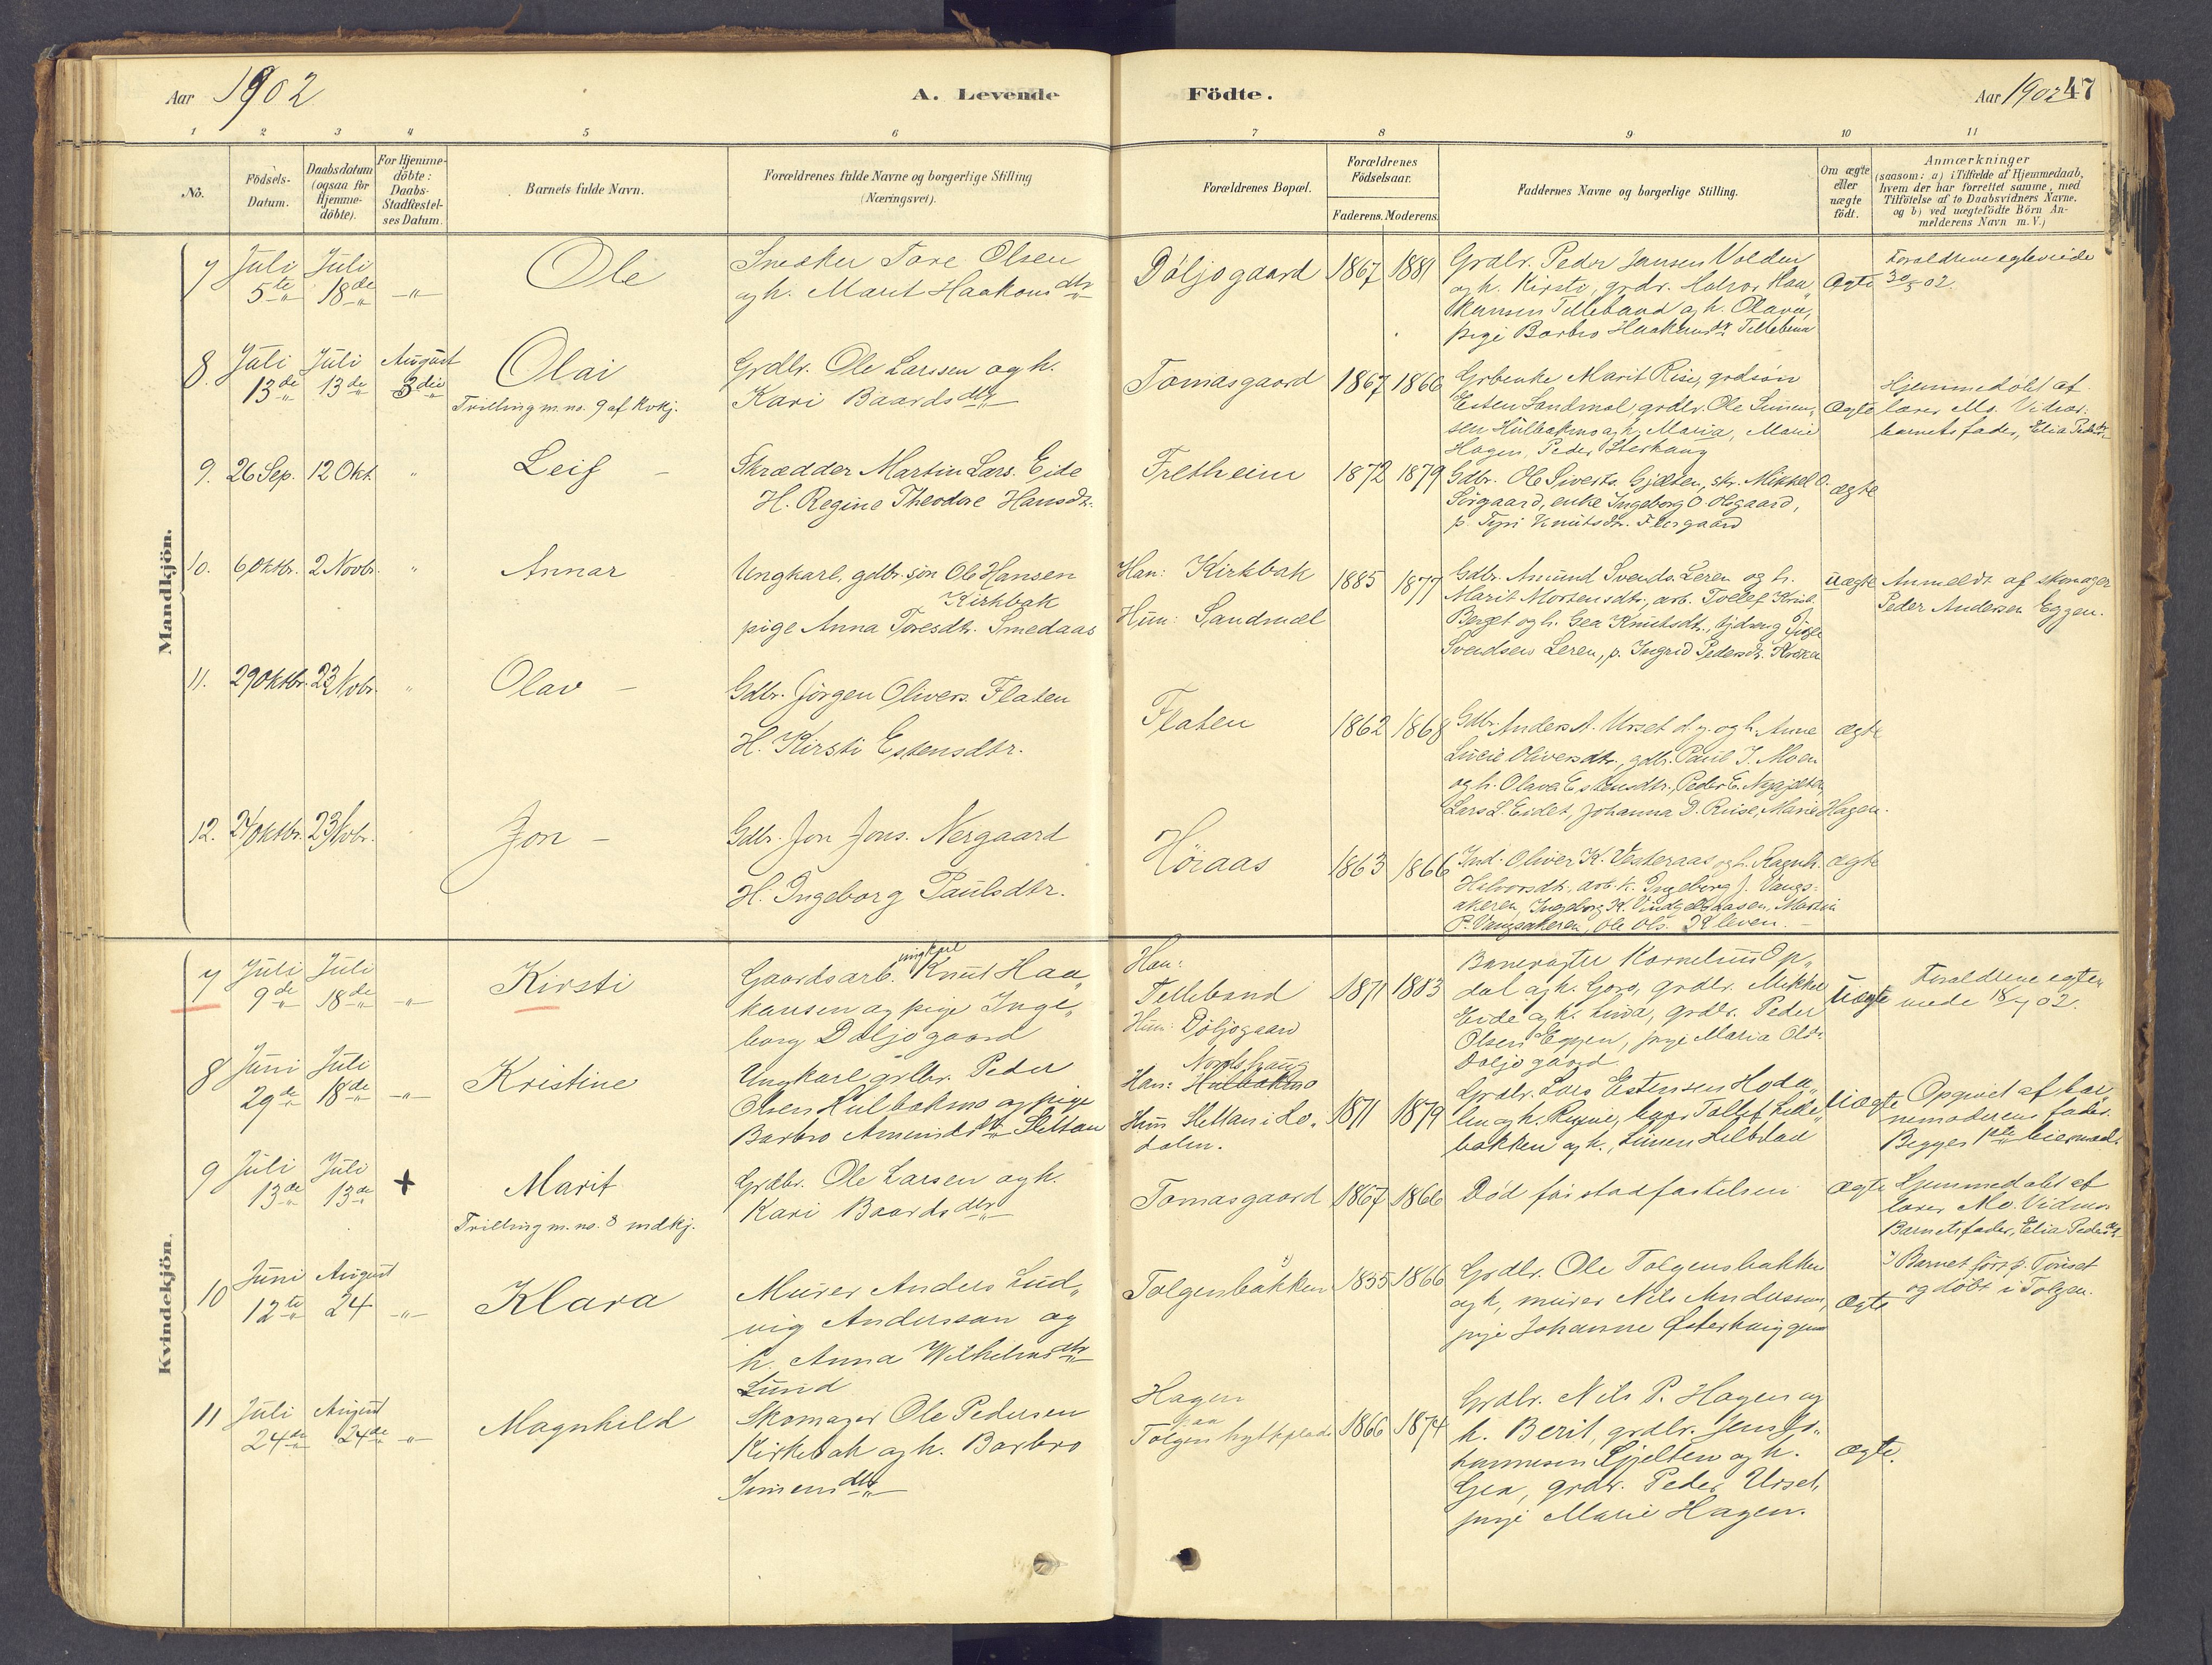 Aar 1902
A. Levende Födte.
Aar 1902 47
1 2 3 4 5 6 7 8 9 10 11
No.
Födsels-Datum.
Daabsdatum (ogsaa for Hjemme-döbte).
For Hjemme-döbte: Daabs-Stadfæstel-ses Datum.
Barnets fulde Navn.
Forældrenes fulde Navne og borgerlige Stilling (Næringsvei).
Forældrenes Bopæl.
Forældrenes Födselsaar.
Faderens. Moderens.
Faddernes Navne og borgerlige Stilling.
Om ægte eller uægte födt.
Anmærkninger
(saasom: a) i Tilfælde af Hjemmedaab,
hvem der har forrettet samme, med
Tilföielse af to Daabsvidners Navne.
og b) ved uægtefödte Börn An-
melderens Navn m. V.)
Mandkjön.
7 Juli 5te Juli 18de -"-
Ole
Snedker Tore Olsen
og h. Marit Haakonsdtr
Döljogaard 1867 1881
Grdbr. Peder Jansen Volden
og h. Kirsti, grdr. Halvor Haa
kansen Tilleband og h. Olava,
pige Barbro Haakansdtr
Ægte
Forældrene egteviede
30/5 02.
8. Juli 13de Juli 13de August 3die
Olai
Trilling m. no. 9 af Kvkj.
Grdbr. Ole Larsen og h.
Kari Baardsdtr
Tomasgaard 1867 1866
Grbenke Marit Rise, grdsøn
Esten Sandmæl, grdbr. Ole Simen-
sen Hulbakmo og h. Maria, Marie
Hagen, Peder
Ægte
Hjemmedøbt af
lærer Mo. Vidner:
barnets fader, Elia Pedersdtr
9. 26 Sep. 12 Okt. "
Leif -
Skrædder Martin Lars. Eide
H. Regine Theodore Hansdtr.
Fretheim 1872 1879
Gdbr. Ole Siverts. Gjelten, skr. Mikkel O.
Sørgaard, enke Ingeborg O. Olsgaard,
p. Tyri Knutsdtr.
ægte
10. 6 Oktbr. 2 Novbr. "
Annar
Ungkarl, gdbr. søn Ole Hansen
Kirkbak
pige Anna Toresdtr. Smedaas
Han: Kirkbak
Hun: Sandmæl
1885 1877
Gdbr. Amund Svends. Leren og h.
Marit Mortensdtr., arb. Tollef Krist.
Berget og h. Gea Knutsdtr.,
Svendsen Leren, p. Ingrid Pedersdtr.
uægte
Anmeldt af skomager
Peder Andersen Eggen.
11. 29 Oktbr. 23 Novbr. "
Olav -
Gdbr. Jörgen Olivers. Flaten
H. Kirsti Estensdtr.
Flaten 1862 1868
Gdbr. Anders A. Urset d.y. og h. Anne
Lucie Oliversdtr., gdbr. Paul J. Moen
og h. Olava Estensdtr., Peder E.
Lars L. Eidet, Johanna D. Riise, Marie Hagen.
ægte
12. 24 Oktbr. 23 Novbr.
Jon -
Gdbr. Jon Jons. Nergaard
H. Ingeborg Paulsdtr.
Höiaas 1863 1866
Ind. Oliver K. Vesteraas og h. Ragnh.
Halvorsdtr., arb. k. Ingeborg J. Vangs-
akeren, Ingeborg K.
P. Vangsakeren, Ole Ols. Kleven. -
ægte
Kvindekjön.
7 Juli 9de Juli 18de -"-
Kirsti
ungkarl
Gaardsarb. Knut Haa
kansen og pige Inge
borg Döljogaard
Han:
Tilleband
Hun: Döljogaard
1871 1883
Banevogter Kornelius Op
dal og h. Goro, grdbr. Mikkel
Eide og h. Lina, grdbr. Peder
Olsen Eggen, pige Maria Olsdtr
Döljogaard
Uægte
Forældrene egte
viede 18/7 02.
8 Juni 29de Juli 18de -"-
Kristine
Ungkarl grbr. Peder
Olsen Hulbakmo og pige
Barbro Amundsdtr Slettan
Nordshaug
Han: Hulbakmo
Hun Slettan i Lo-
dalen.
1871 1879
Grdbr. Lars Estensen Hoda
len og h. Regine, Tollef Lille
bakken og h., Simen
Uægte
Opgivet af bar
nemoderens fader.
Begges 1ste leiermaal.
9 Juli 13de Juli 13de +
Marit
Trilling m. no. 8 mdkj.
Grdbr. Ole Larsen og h.
Kari Baardsdtr
Tomasgaard 1867 1866
Død før stadfæstelsen
Ægte
Hjemmedøbt af
lærer Mo. Vidner
Barnets fader, Elia Pedersdtr
10 Juni 12te August 24 -"-
Klara
Murer Anders Lud
vig Andersson og
h. Anna Wilhelmsdtr
Lund
Tolgensbakken 1855 1866
Grdbr. Ole Tolgensbakken
og h, murer Nils Andersson,
pige Johanne
Ægte
Barnet født p. Tönset
og døbt i Tolgen.
11 Juli 24de August 24de -"-
Magnhild
Skomager Ole Pedersen
Kirkebak og h. Barbro
Simensdtr
Hagen
paa
Tolgens hytteplads
1866 1874
Grdbr. Nils P. Hagen og
h. Berit, grdbr. Jens Jo-
hannesen Gjelten og h.
Gea, grdbr. Peder Urset,
pige Marie Hagen.
ægte.